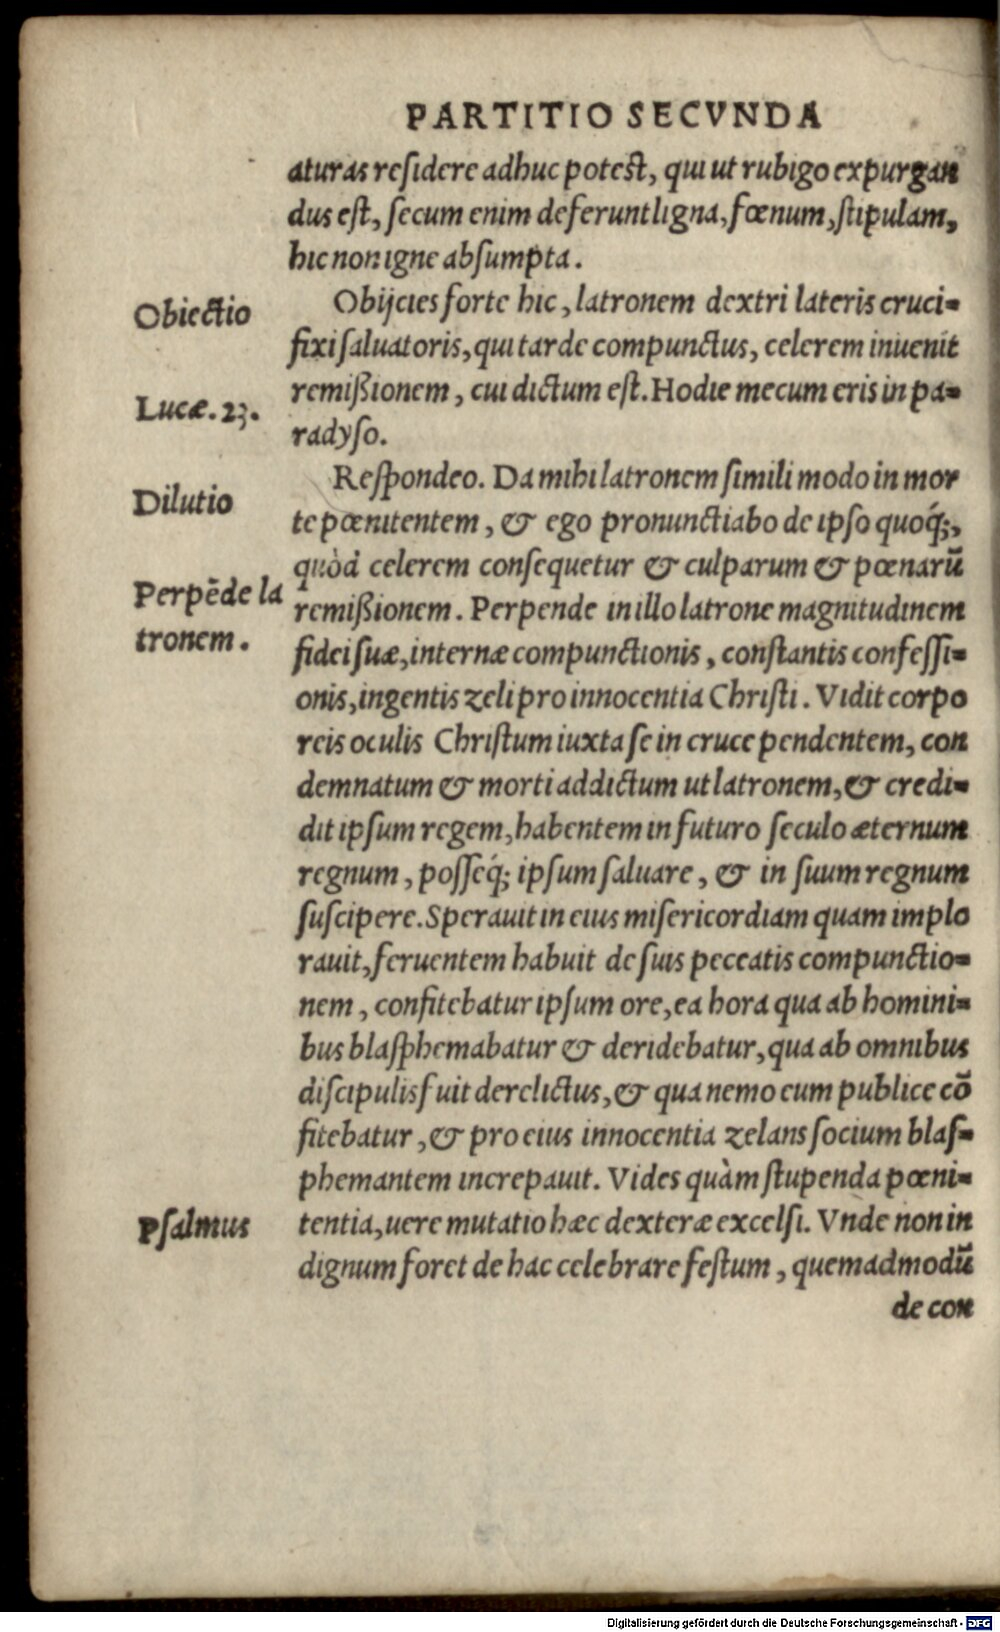 PARTITIO SECVNDA
aturas residere adhuc potest, qui ut rubigo expurgan
dus est, secum enim deferunt ligna, fœnum, stipulam,
hic non igne absumpta.
Obiectio
Obijcies forte hic, latronem dextri lateris cruci=
fixi saluatoris, qui tarde compunctus, celerem inuenit
Lucæ. 23.
remißionem, cui dictum est. Hodie mecum eris in pa=
radyso.
Dilutio
Respondeo. Da mihi latronem simili modo in mor
te pœnitentem, & ego pronunctiabo de ipso quoq́;,
quòd celerem consequetur & culparum & pœnarū
Perpēde la
tronem.
remißionem. Perpende in illo latrone magnitudinem
fidei suæ, internæ compunctionis, constantis confessi=
onis, ingentis zeli pro innocentia Christi. Vidit corpo
reis oculis Christum iuxta se in cruce pendentem, con
demnatum & morti addictum ut latronem, & credi=
dit ipsum regem, habentem in futuro seculo æternum
regnum, posseq́; ipsum saluare, & in suum regnum
suscipere. Sperauit in eius misericordiam quam implo
rauit, feruentem habuit de suis peccatis compunctio=
nem, confitebatur ipsum ore, ea hora qua ab homini=
bus blasphemabatur & deridebatur, qua ab omnibus
discipulis fuit derelictus, & qua nemo eum publice cō
fitebatur, & pro eius innocentia zelans socium blas=
phemantem increpauit. Vides quàm stupenda pœni=
Psalmus
tentia, uere mutatio hæc dexteræ excelsi. Vnde non in
dignum foret de hac celebrare festum, quemadmodū
de con
Digitalisierung gefördert durch die Deutsche Forschungsgemeinschaft - DFG